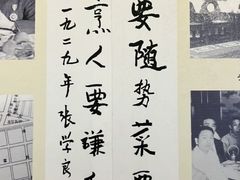 要随势菜要
烹人要謙
一九二九年张学良